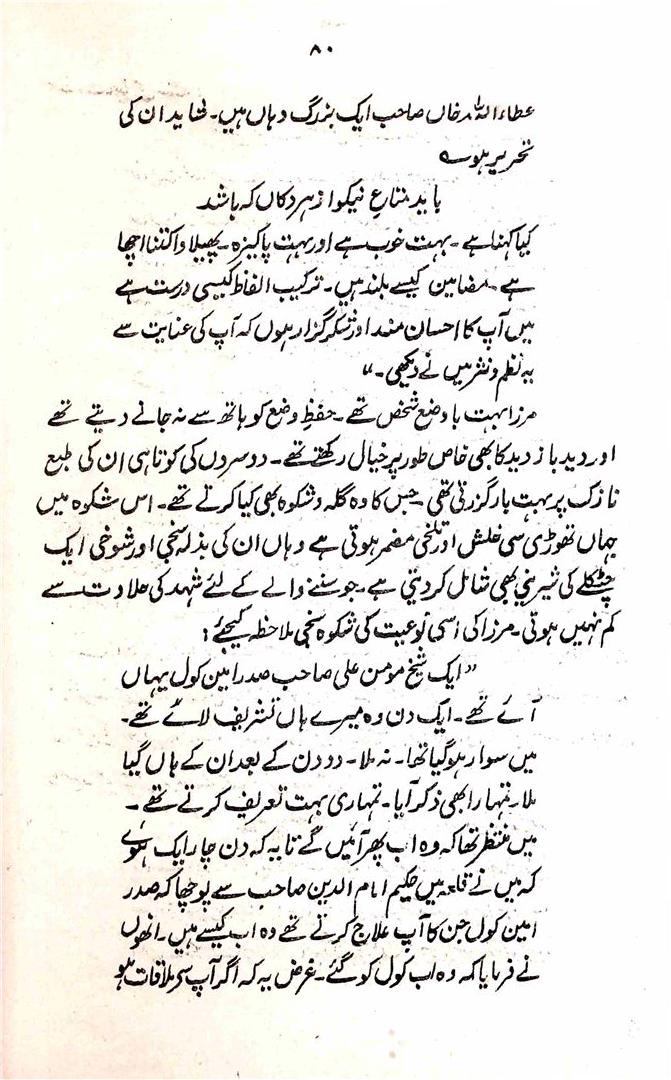 ۸۰
عطاء اللہ خاں صاحب ایک بزرگ وہاں ہیں۔ شاید ان کی
تحریر ہو ؎
باید متاعِ نیکو از ہر دکاں کہ باشد
کیا کہنا ہے۔ بہت خوب ہے اور بہت پاکیزہ۔ پھیلاوا کتنا اچھا
ہے۔ مضامین کیسے بلند ہیں۔ ترکیب الفاظ کیسی درست ہے
میں آپ کا احسان مند اور شکر گزار ہوں کہ آپ کی عنایت سے
یہ نظم و نثر میں نے دیکھی۔"
مرزا بہت با وضع شخص تھے۔ حفظِ وضع کو ہاتھ سے نہ جانے دیتے تھے
اور دید باز دید کا بھی خاص طور پر خیال رکھتے تھے۔ دوسروں کی کوتاہی ان کی طبع
نازک پر بہت بار گزرتی تھی۔ جس کا وہ گلہ و شکوہ بھی کیا کرتے تھے۔ اس شکوہ میں
جہاں تھوڑی سی خلش اور تلخی مضمر ہوتی ہے وہاں ان کی بذلہ سنجی اور شوخی ایک
چٹکلے کی شیرینی بھی شامل کر دیتی ہے۔ جو سننے والے کے لئے شہد کی حلاوت سے
کم نہیں ہوتی۔ مرزا کی اسی نوعیت کی شکوہ سنجی ملاحظہ کیجئے :
"ایک شیخ مومن علی صاحب صدر امین کول یہاں
آئے تھے۔ ایک دن وہ میرے ہاں تشریف لائے تھے۔
میں سوار ہو گیا تھا۔ نہ ملا۔ دو دن کے بعد ان کے ہاں گیا
ملا۔ تمہارا بھی ذکر آیا۔ تمہاری بہت تعریف کرتے تھے۔
میں منتظر تھا کہ وہ اب پھر آئیں گے تا یہ کہ دن چار ایک ہوئے
کہ میں نے قلعہ میں حکیم امام الدین صاحب سے پوچھا کہ صدر
امین کول جن کا آپ علاج کرتے تھے وہ اب کیسے ہیں۔ انھوں
نے فرمایا کہ وہ اب کول کو گئے۔ غرض یہ کہ اگر آپ سے ملاقات ہو